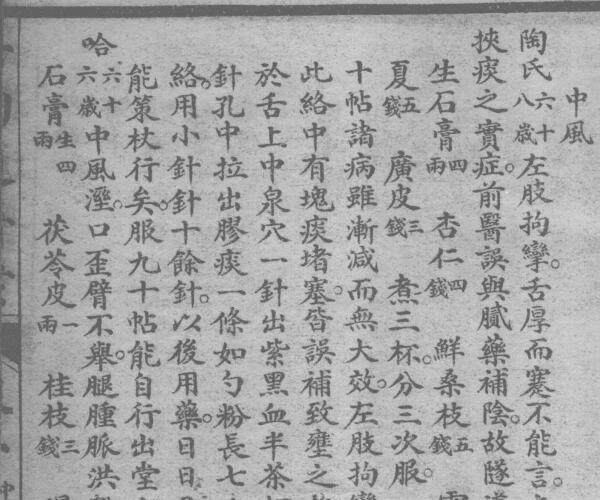 中風
陶氏六十八歲左肢拘攣。舌厚而蹇不能言。
挾痰之實症。前醫誤與膩藥補陰。故遂
生石膏四兩 杏仁四錢 鮮桑枝五錢
夏五錢 廣皮三錢 煮三杯。分三次服。
十帖諸病雖漸減而無大效。左肢拘
此絡中有塊痰堵塞。皆誤補致壅之
於舌上中泉穴一針出紫黑血半茶
針孔中拉出膠痰一條如勺粉長七
絡。用小針針十餘針。以後用藥。日日
能策杖行矣。服九十帖能自行出堂
哈六十六歲中風溼。口歪臂不舉。腿腫脈洪
石膏生四兩 茯苓皮一兩 桂枝三錢